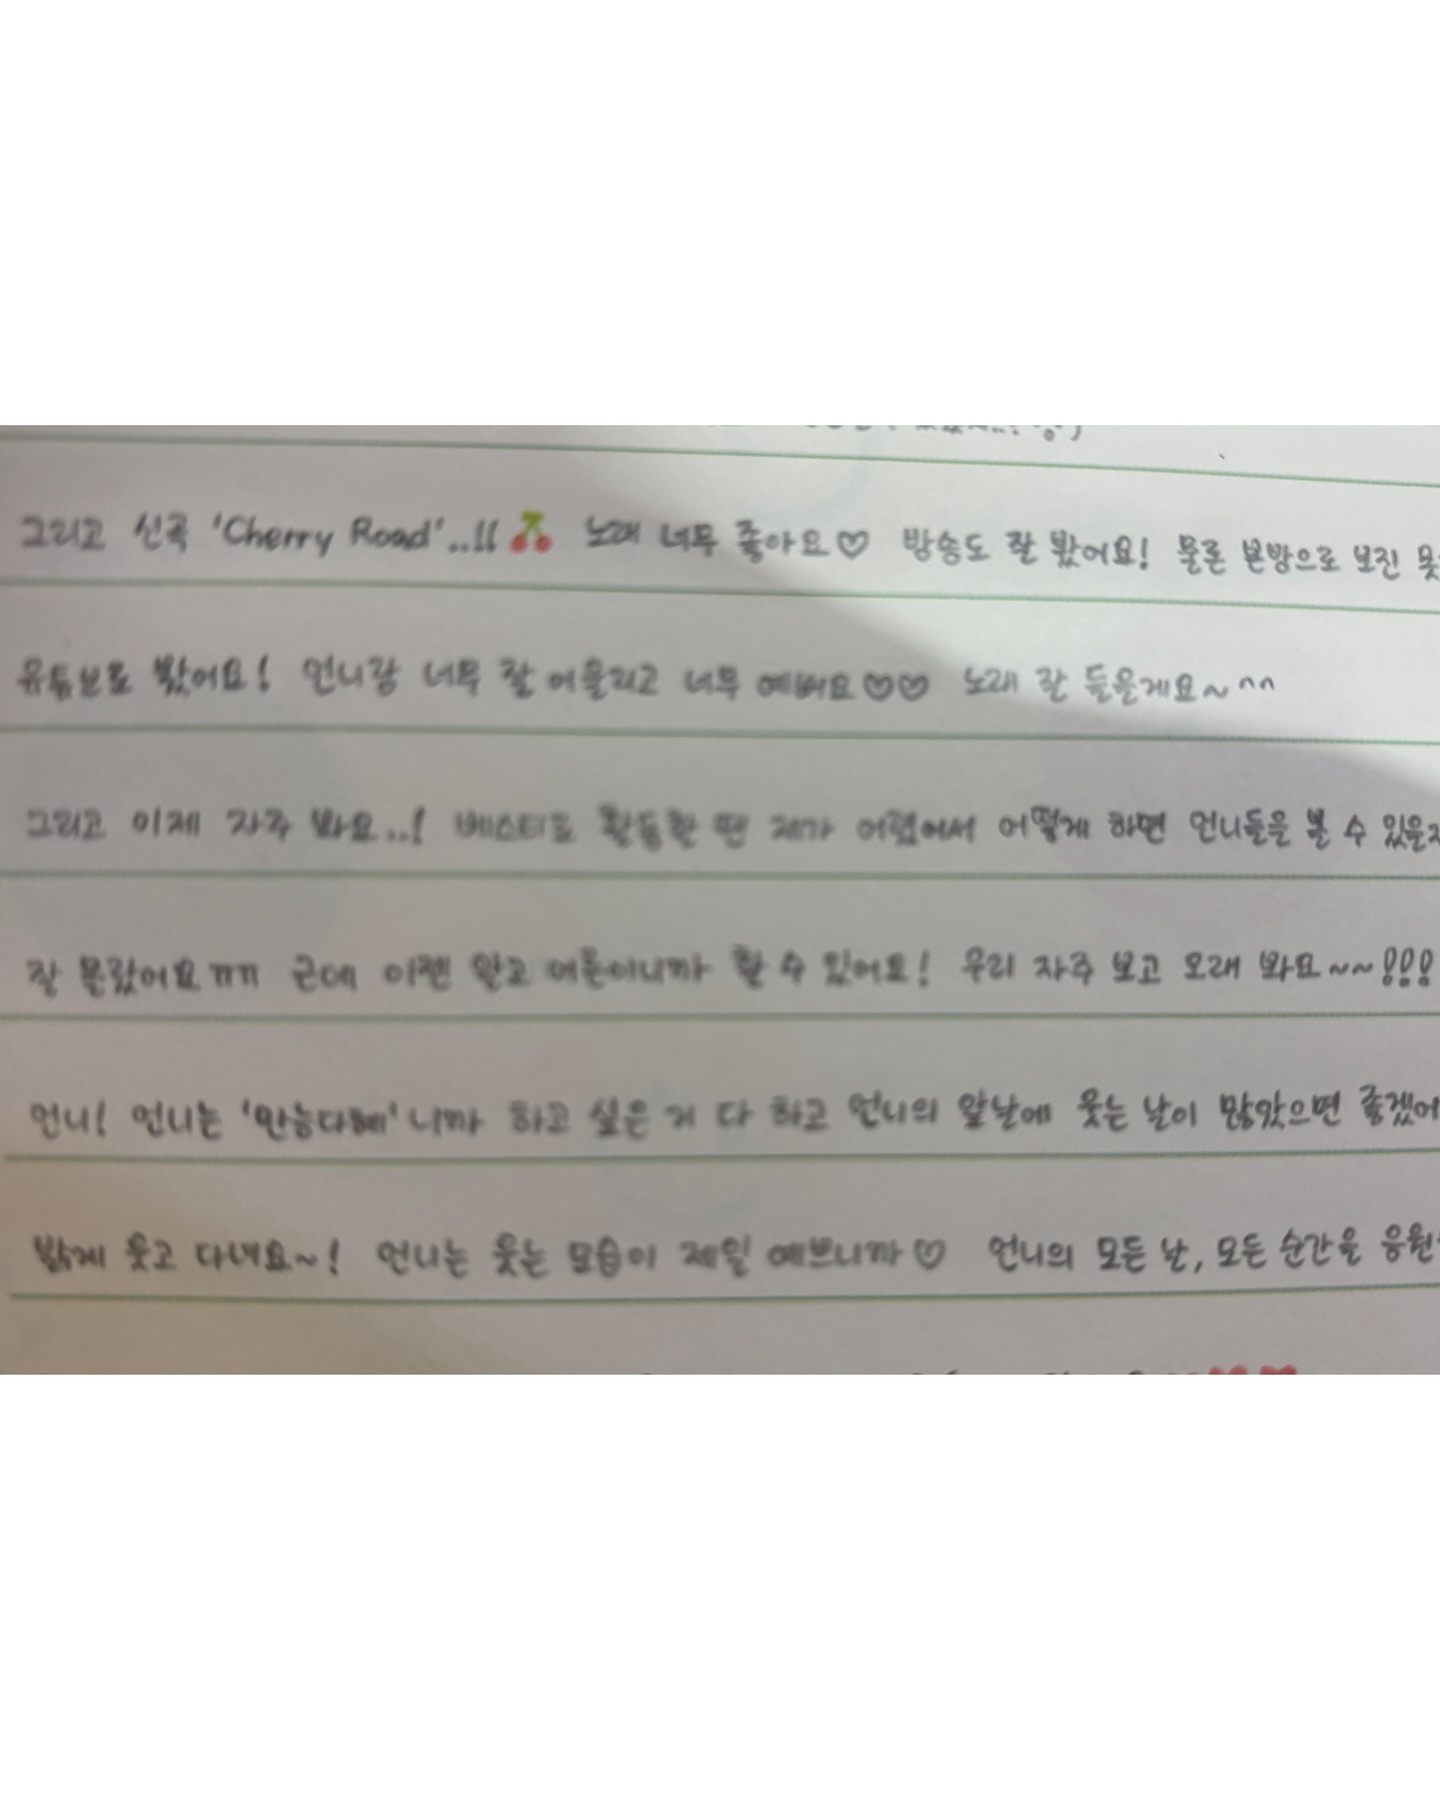 그리고 신곡 'Cherry Road'..!! 노래 너무 좋아요♡ 방송도 잘 봤어요! 물론 본방으로 보진 못
유튜브로 봤어요! 언니랑 너무 잘 어울리고 너무 예뻐요♡♡ 노래 잘 들을게요~^^
그리고 이제 자주 봐요..! 베스티로 활동할 땐 제가 어렸어서 어떻게 하면 언니들을 볼 수 있을지
잘 몰랐어요ㅠㅠ 근데 이젠 알고 어른이니까 할 수 있어요! 우리 자주 보고 오래 봐요~~!!!
언니! 언니는 '만능다혜'니까 하고 싶은 거 다 하고 언니의 앞날에 웃는 날이 많았으면 좋겠어
밝게 웃고 다녀요~! 언니는 웃는 모습이 제일 예쁘니까♡ 언니의 모든 날, 모든 순간을 응원